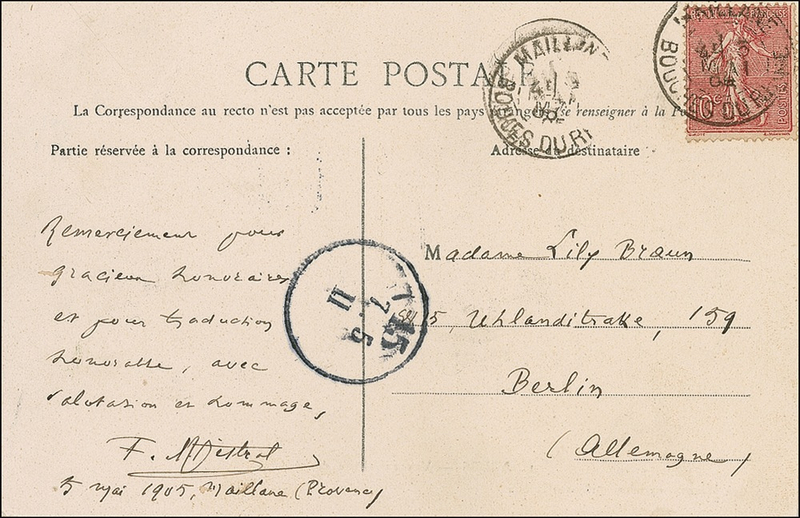 CARTE POSTALE
La Correspondance au recto n'est pas acceptée par tous les pays (se renseigner à la
Partie réservée à la correspondance :
Adresse du destinataire
MAILLANE
BOUCHES DU RH
MAILLANE
BOUCHES DU RHONE
10c
Remerciement pour
gracieux honoraires
et pour traduction
honorable, avec
salutation et hommage,
F. Mistral
5 mai 1905, Maillane (Provence)
Madame Lily Braun
5, Uhlandstrake, 159
Berlin
(Allemagne)